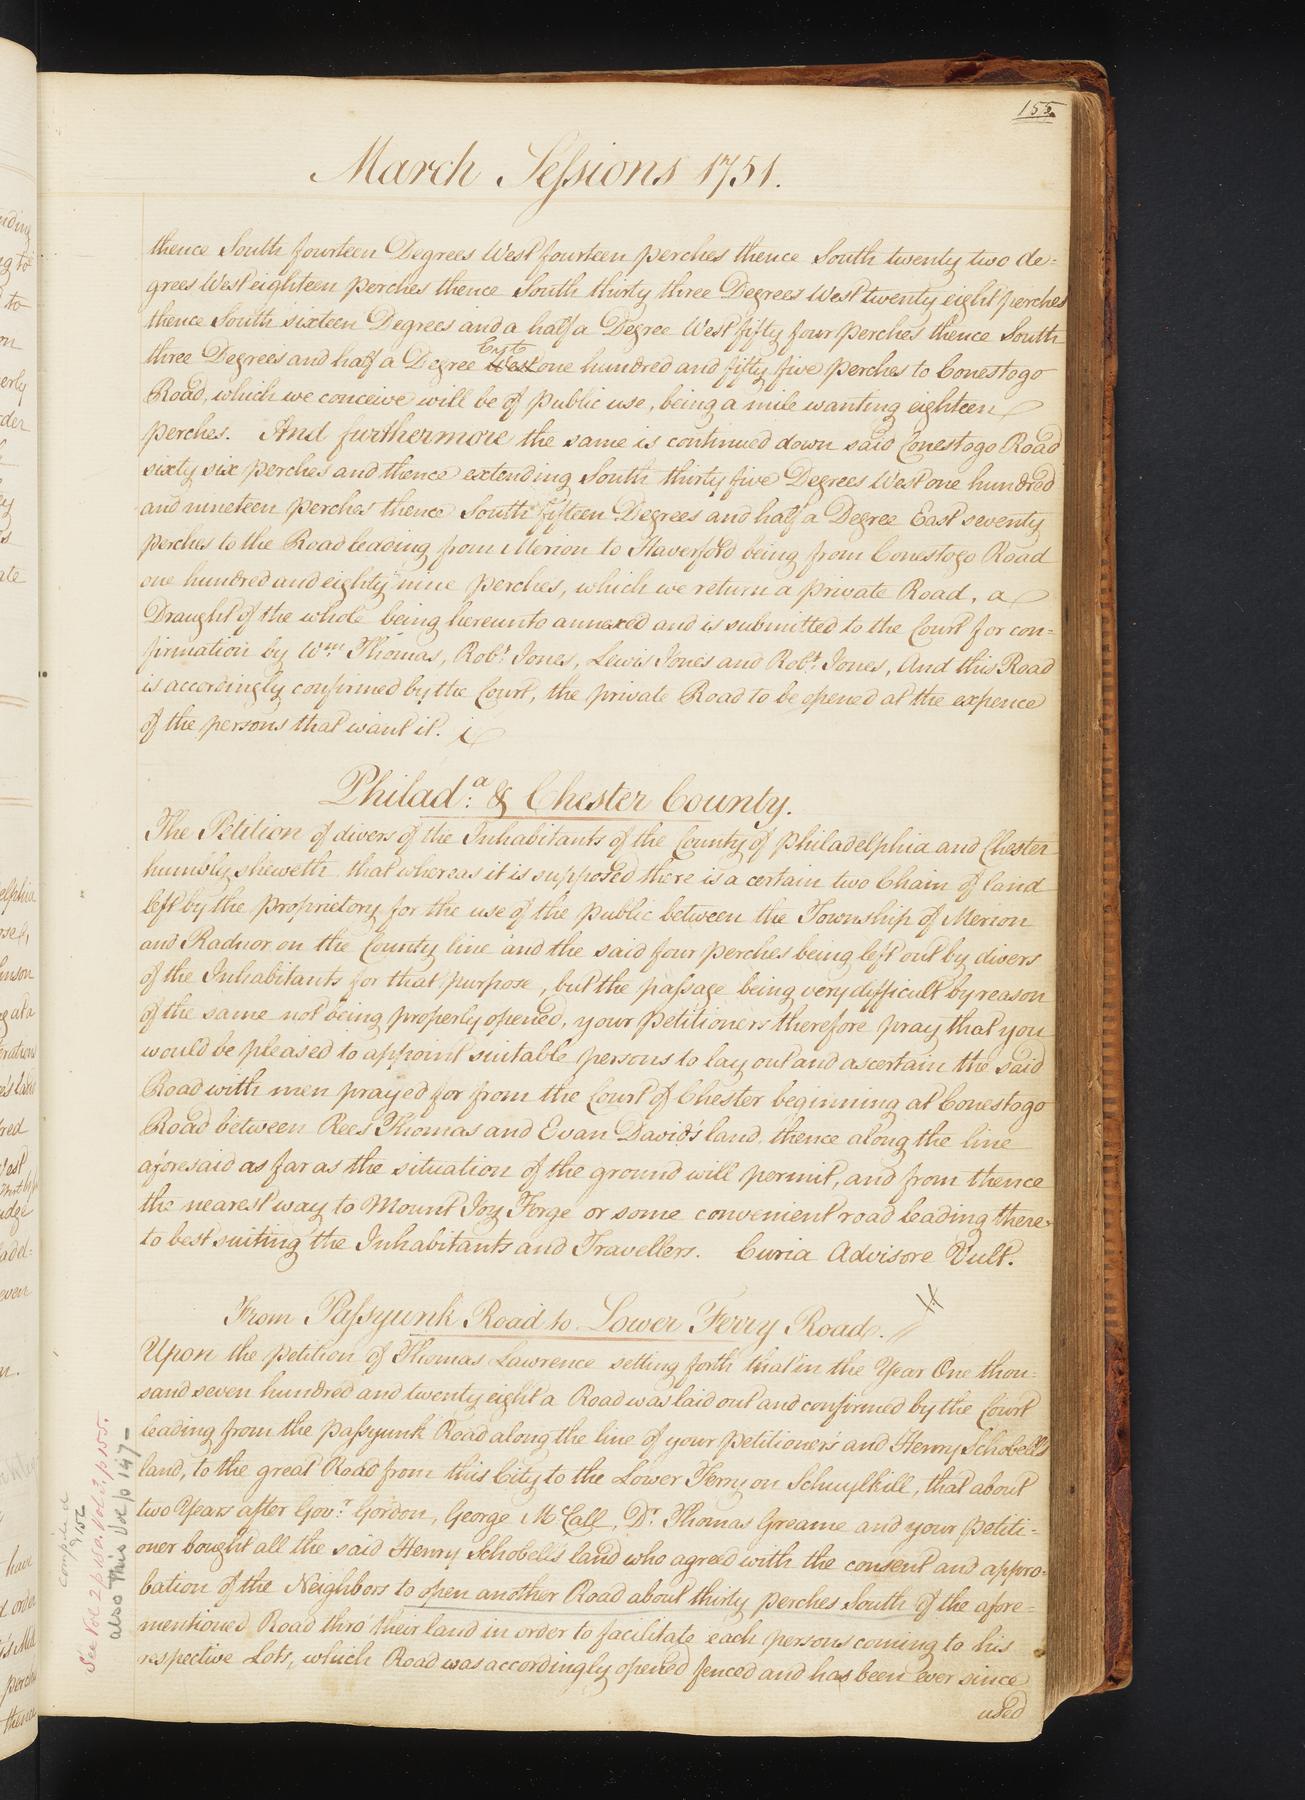 155.
March Sessions 1751.
thence South fourteen Degrees West fourteen perches thence South twenty two de=
grees West eighteen perches thence South thirty three Degrees West twenty eight perches
thence South sixteen Degrees and a half a Degree West fifty four perches thence South
three Degrees and half a Degree West East one hundred and fifty five perches to Conestogo
Road, which we conceive will be of public use, being a mile wanting eighteen
perches. And furthermore the same is continued down said Conestogo Road
sixty six perches and thence extending South thirty five Degrees West one hundred
and nineteen perches thence South fifteen Degrees and half a Degree East seventy
perches to the Road leading from Merion to Haverford being from Conestogo Road
one hundred and eighty nine perches, which we return a private Road, a
Draught of the whole being hereunto annexed and is submitted to the Court for con=
firmation by Wm. Thomas, Robt. Jones, Lewis Jones and Robt. Jones, And this Road
is accordingly confirmed by the Court, the private Road to be opened at the expence
of the persons that want it.
Philada. & Chester County.
The Petition of divers of the Inhabitants of the County of Philadelphia and Chester
humbly sheweth, that whereas it is supposed there is a certain two Chain of land
left by the proprietory for the use of the public between the Township of Merion
and Radnor on the County line and the said four perches being left out by divers
of the Inhabitants for that purpose, but the passage being very difficult by reason
of the same not being properly opened, your Petitioners therefore pray that you
would be pleased to appoint suitable persons to lay out and ascertain the said
Road with men prayed for from the Court of Chester beginning at Conestogo
Road between Rees Thomas and Evan David's land, thence along the line
aforesaid as far as the situation of the ground will permit, and from thence
the nearest way to Mount Joy Forge or some convenient road leading there=
to best suiting the Inhabitants and Travellers. Curia Advisore Vult.
From Passyunk Road to Lower Ferry Road.
Upon the petition of Thomas Lawrence setting forth that in the Year One thou=
sand seven hundred and twenty eight a Road was laid out and confirmed by the Court
leading from the passyunk Road along the line of your petitioner's and Henry Schobell's
land, to the great Road from this City to the Lower Ferry on Schuylkill, that about
two Years after Govr. Gordon, George McCall, Dr. Thomas Greame and your petiti=
oner bought all the said Henry Schobell's land who agreed with the consent and appro=
bation of the Neighbors to open another Road about thirty perches South of the afore=
mentioned Road thro' their land in order to facilitate each persons coming to his
respective Lots, which Road was accordingly opened fenced and has been ever since
used
compiled
See Vol 2 p 155.
also This Vol p 147-